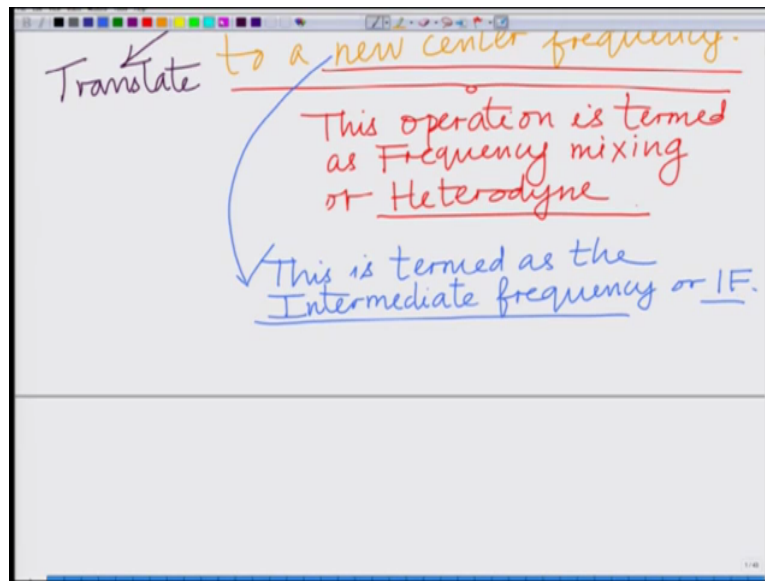 to a new center frequency.
Translate
This operation is termed
as Frequency mixing
or Heterodyne
This is termed as the
Intermediate frequency or IF.